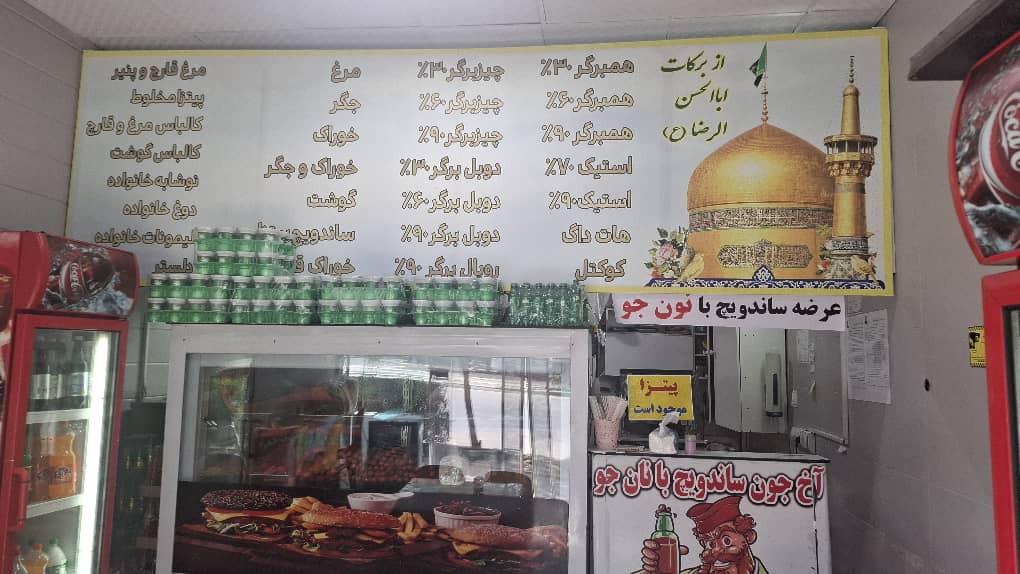 از برکات
اباالحسن
الرضا (ع)
همبرگر ۳۰٪
همبرگر ۶۰٪
همبرگر ۹۰٪
استیک ۷۰٪
استیک ۹۰٪
هات داگ
کوکتل
چیزبرگر ۳۰٪
چیزبرگر ۶۰٪
چیزبرگر ۹۰٪
دوبل برگر ۳۰٪
دوبل برگر ۶۰٪
دوبل برگر ۹۰٪
رویال برگر ۹۰٪
مرغ
جگر
خوراک
خوراک و جگر
گوشت
خوراک
مرغ قارچ و پنیر
پیتزا مخلوط
کالباس مرغ و قارچ
کالباس گوشت
نوشابه خانواده
دوغ خانواده
لیمونات خانواده
دلستر
عرضه ساندویچ با نون جو
پیتزا
موجود است
آخ جون ساندویچ با نان جو